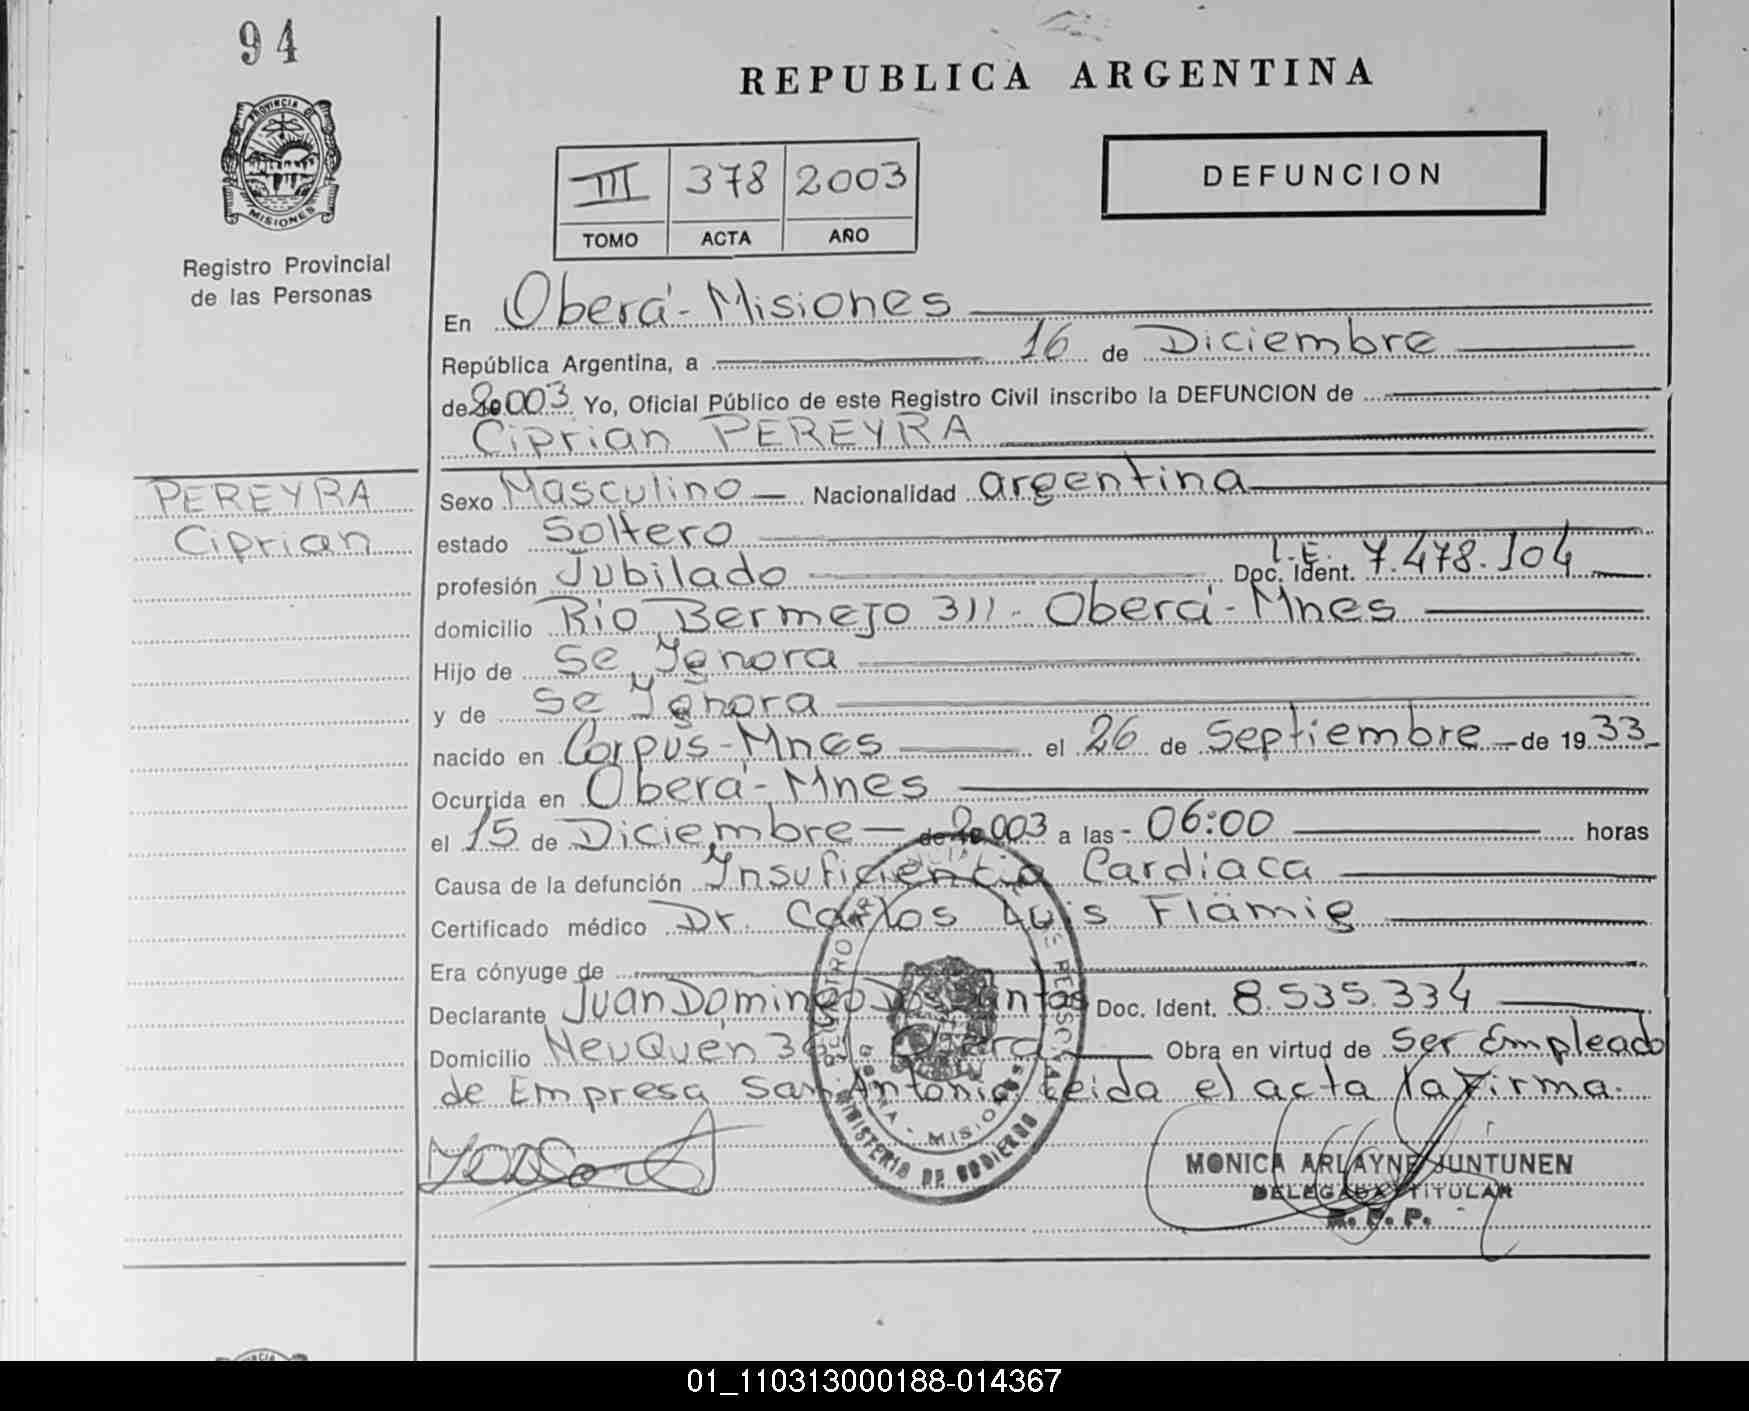 94
PROVINCIA DE
MISIONES
Registro Provincial
de las Personas
REPUBLICA ARGENTINA
III 378 2003
TOMO ACTA AÑO
DEFUNCION
En Oberá - Misiones
República Argentina, a 16 de Diciembre
de 2003 Yo, Oficial Público de este Registro Civil inscribo la DEFUNCION de
Ciprian PEREYRA
PEREYRA
Ciprian
Sexo Masculino Nacionalidad argentina
estado Soltero
profesión Jubilado Doc. Ident. L.E. 7.478.104
domicilio Rio Bermejo 311 - Oberá - Mnes
Hijo de Se Ignora
y de Se Ignora
nacido en Corpus - Mnes el 26 de Septiembre de 1933
Ocurrida en Oberá - Mnes
el 15 de Diciembre de 2003 a las - 06:00 horas
Causa de la defunción Insuficiencia Cardiaca
Certificado médico Dr. Carlos Luis Flamig
Era cónyuge de
Declarante Juan Domingo Dos Santos Doc. Ident. 8.535.334
Domicilio Neuquén Oberá Obra en virtud de Ser Empleado
de Empresa San Antonio. Leida el acta la Firma.
MINISTERIO DE GOBIERNO
MISIONES
MONICA ARLAYNE JUNTUNEN
DELEGADA TITULAR
R. P. P.
01_110313000188-014367